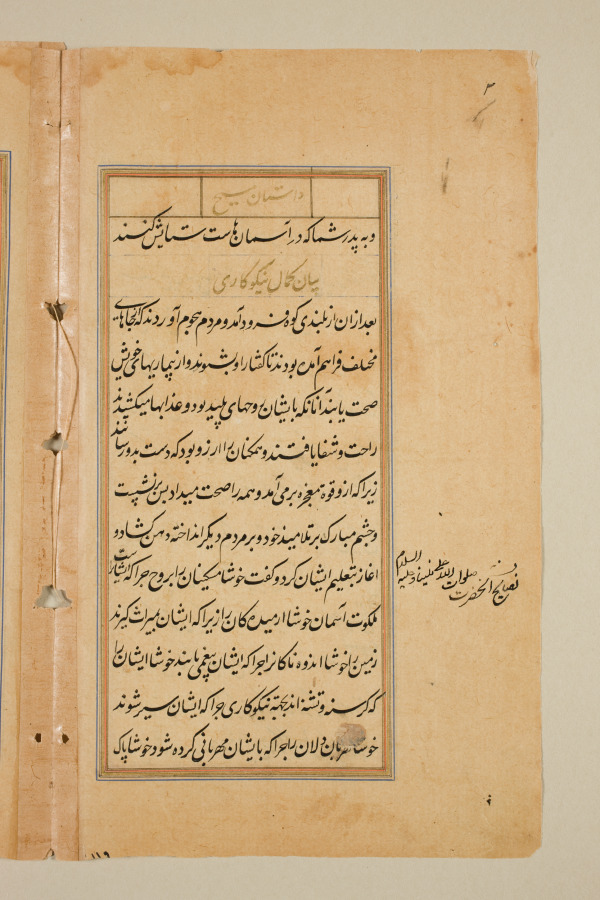 ۳
داستان مسیح
و به پدر شما که در آسمان هاست ستایش کنند
بیان کمال نیکوکاری
بعد ازان از بلندی کوه فرود آمد و مردم هجوم آوردند که از جاهای
مختلف فراهم آمده بودند تا گفتار او بشنوند و از بیماریهای خویش
صحت یابند آنانکه بایشان روحهای پلید بود و عذابها میکشیدند
راحت و شفا یافتند و همکنان را ارزو بود که دست بدو رسانند
زیرا که ازو قوة معجزه برمی آمد و همه را صحت میداد پس بر نشست
و چشم مبارک بر تلامیذ خود و بر مردم دیگر انداخته دهن کشاد و
اغاز بتعلیم ایشان کرد و گفت خوشا مسکینان را بروح چرا که ایشانراست
ملکوت آسمان خوشا ارمیده کان را زیرا که ایشان بمیراث گیرند
زمین را خوشا اندوه ناکانرا چرا که ایشان بیغمی یابند خوشا ایشان را
که گرسنه و تشنه اند بجهة نیکوکاری چرا که ایشان سیر شوند
خوشا مهربان دلان را چرا که بایشان مهربانی کرده شود خوشا پاک
نصایح آنحضرت صلوات الله علی نبینا و علیه السلام
۱۱۹